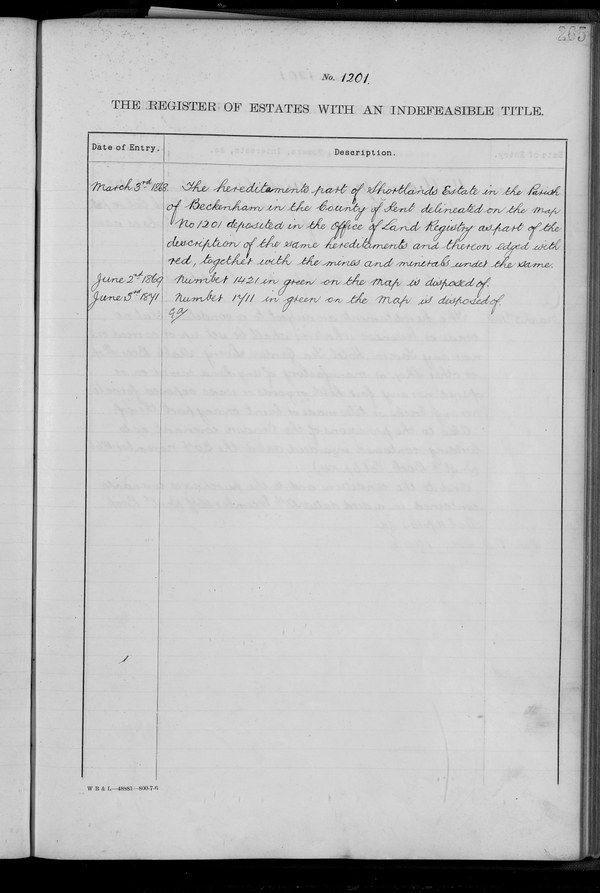 265
No. 1201.
THE REGISTER OF ESTATES WITH AN INDEFEASIBLE TITLE.
Date of Entry.
Description.
March 3rd 1868. The hereditaments part of Shortlands Estate in the Parish
of Beckenham in the County of Kent delineated on the Map
No 1201 deposited in the Office of Land Registry as part of the
description of the same hereditaments and thereon edged with
red, together with the mines and minerals under the same.
June 2nd 1869 Number 1421 in green on the Map is disposed of.
June 5th 1871 Number 1711 in green on the Map is disposed of.
W B & L—48881—800-7-6